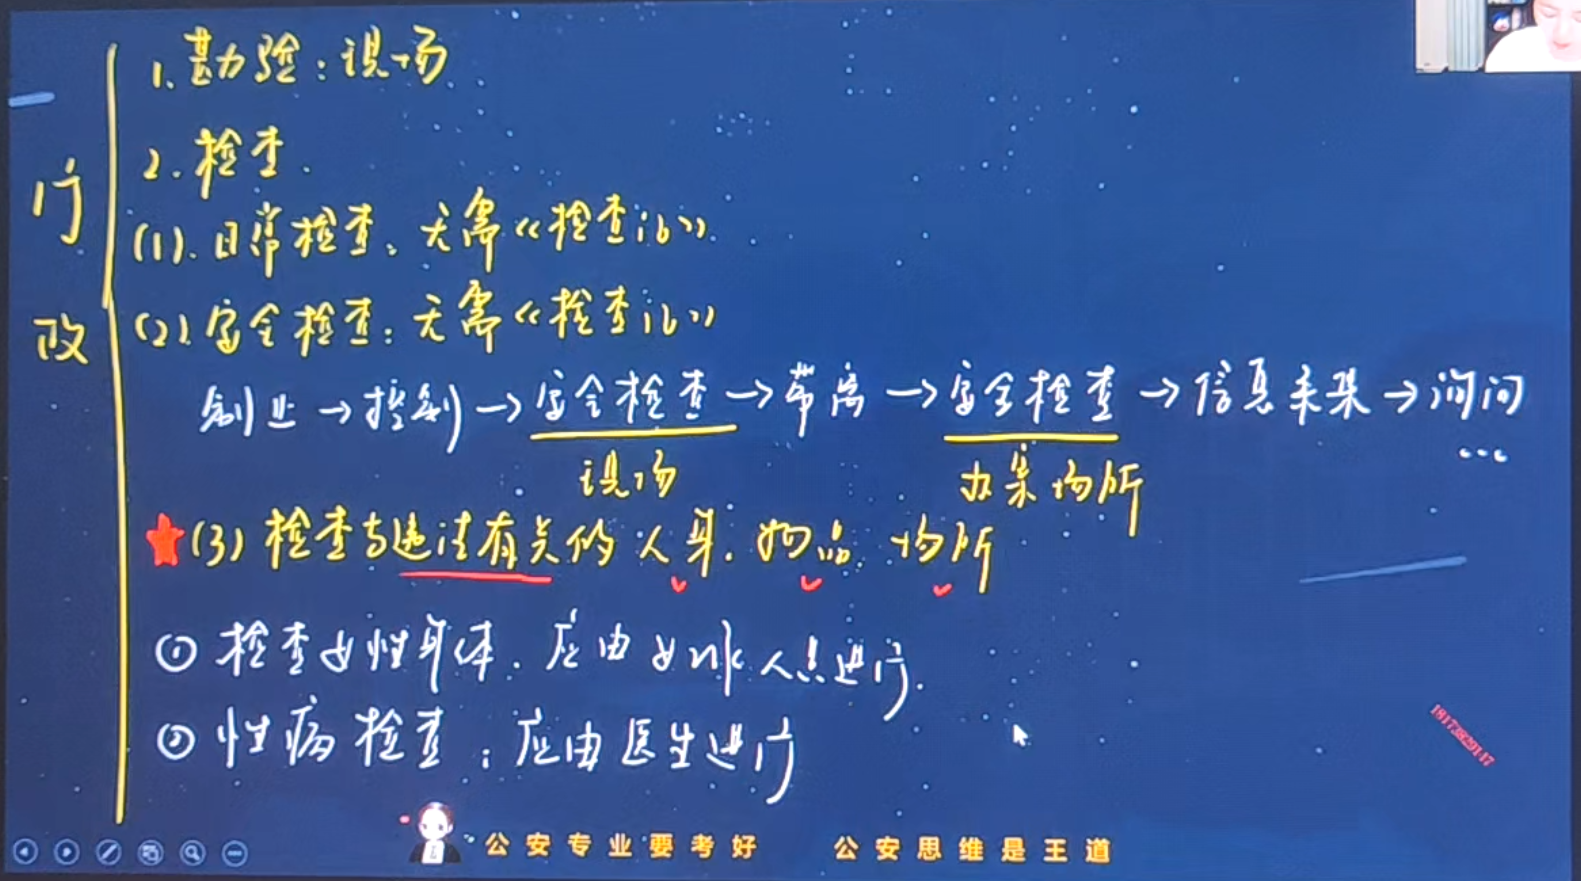 行政
1.勘验:现场
2.检查.
(1).日常检查:无需《检查证》.
(2).安全检查:无需《检查证》
制止→控制→安全检查→带离→安全检查→信息采集→询问
...
现场
办案场所
★(3)检查与违法有关的人身.物品.场所
①检查女性身体.应由女性人员进行.
②性病检查:应由医生进行
18173829147
公安专业要考好 公安思维是王道